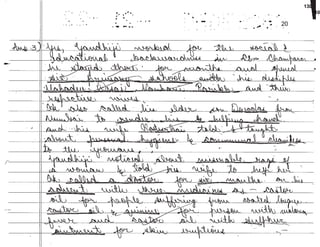 20
Ans 3) Yes, Gandhiji worked for the social &
educational backwardness in Champaran
he stayed there for months and opened
six primary schools with his disciples
Mahadev Desai Narhari Parikh and their
respective wives.
He also called his elder son Devdas from
Mumbai to render his helping hand
and his wife Kasturbai told & taught
about personal hygiene & communal cleanliness
to the women.
Gandhiji noticed about miserable rags of
a woman & told his wife to help her
He called a doctor for six months on his
with three medicines as - castor
oil for people suffering from coated tongue
castor oil & quinine for person with malaria
fever and castor oil with sulphur
ointment for skin eruptions